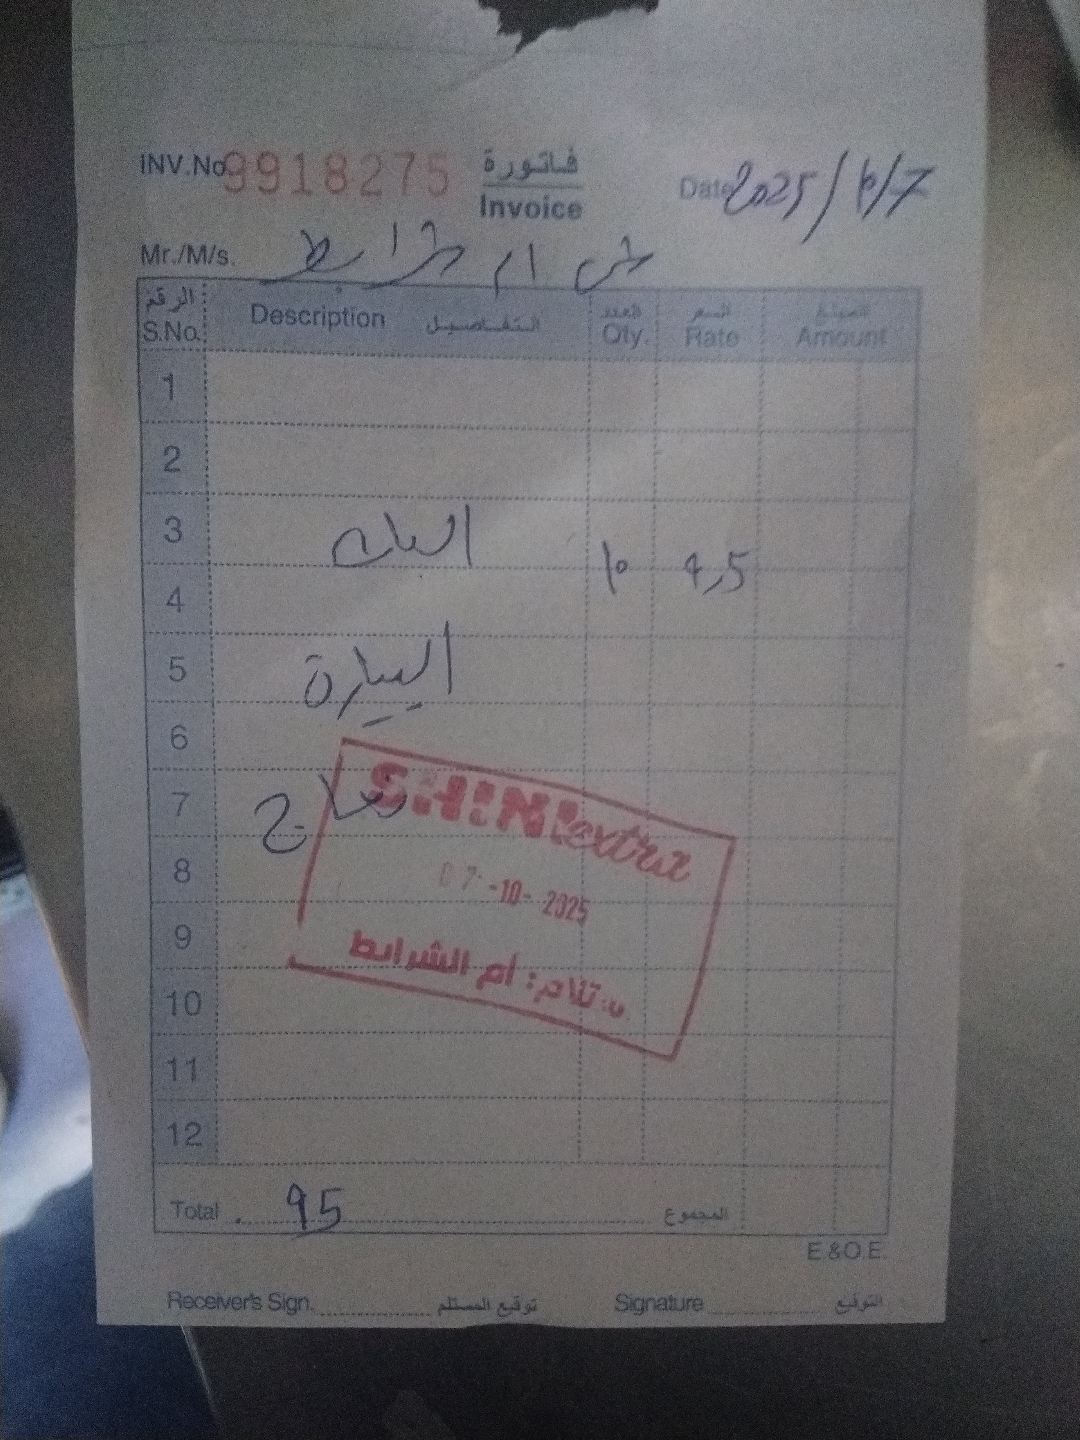 INV.No 9918275 فاتورة Date 2025/10/7
Invoice
Mr./M/s. ام
الرقم Description التفاصيل العدد السعر المبلغ
S.No. Qty. Rate Amount
1
2
3
10 9,5
4
5 السيارة
6
7
8
9
10
11
12
SHINI extra
07-10-2025
أم الشرايط
Total 95 المجموع
E.&O.E.
Receiver's Sign. توقيع المستلم Signature التوقيع